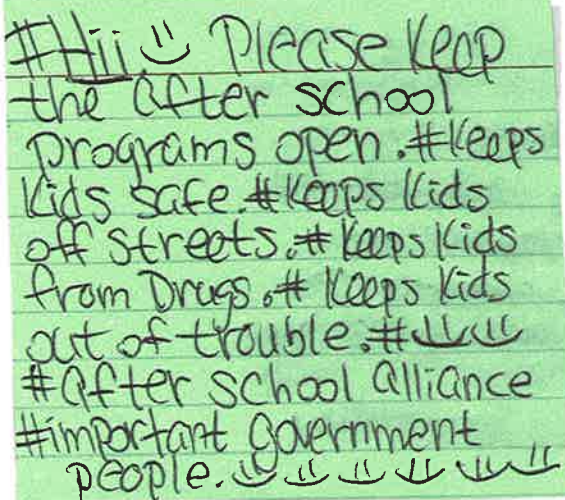 #Hii. Please Keep
the after school
programs open.#Keeps
Kids safe.#Keeps Kids
off streets.#Keeps Kids
from Drugs.# Keeps Kids
out of trouble.#
#after school alliance
#important government
people.